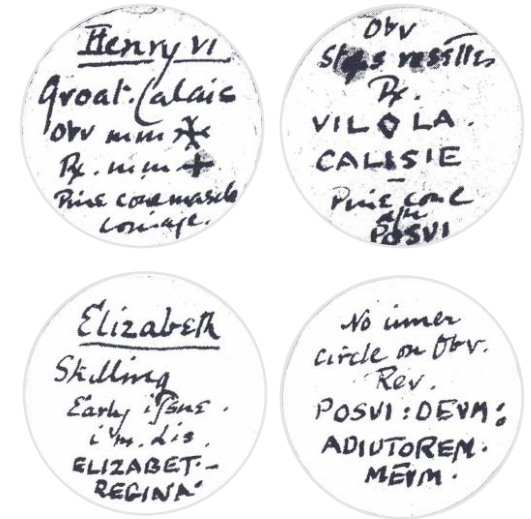 Henry VI
Groat. Calais
Obv mm
Rx. mm +
Pine cone mascle
coinage.
Obv
Stops rosettes
Rx.
VIL ◊ LA.
CALISIE
Pine cone
after
POSVI
Elizabeth
Shilling
Early issue.
i'm. Lis.
ELIZABET.-
REGINA.
No inner
circle on Obv.
Rev.
POSVI : DEVM :
ADIUTOREM.
MEVM.